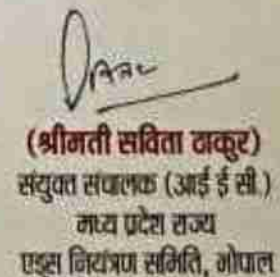 (श्रीमती सविता ठाकुर)
संयुक्त संचालक (आई ई सी.)
मध्य प्रदेश राज्य
एड्स नियंत्रण समिति, भोपाल